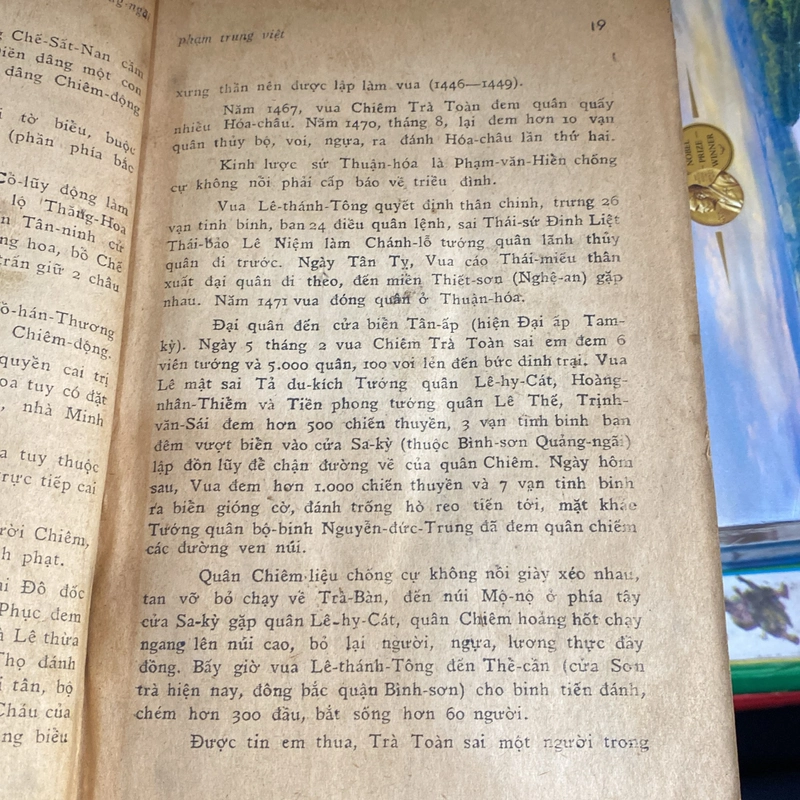 ng Chế-Sắt-Nan cầm
hiến dâng một con
dâng Chiêm-động
tờ biểu, buộc
(phần phía bắc
Cồ-lũy động làm
lộ Thăng-Hoa
Tân-ninh cử
ng hoa, bồ Chế
trấn giữ 2 châu
Hồ-hán-Thương
Chiêm-động.
quyền cai trị
hoa tuy có đặt
, nhà Minh
a tuy thuộc
trực tiếp cai
ười Chiêm,
h phạt.
Đô đốc
Phục đem
à Lê thừa
Thọ đánh
tân, bộ
Châu của
ng biểu
phạm trung việt
19
xưng thần nên được lập làm vua (1446—1449).
Năm 1467, vua Chiêm Trà Toàn đem quân quấy
nhiễu Hóa-châu. Năm 1470, tháng 8, lại đem hơn 10 vạn
quân thủy bộ, voi, ngựa, ra đánh Hóa-châu lần thứ hai.
Kinh lược sứ Thuận-hóa là Phạm-văn-Hiền chống
cự không nồi phải cấp báo về triều đình.
Vua Lê-thánh-Tông quyết định thân chinh, trưng 26
vạn tinh binh, ban 24 điều quân lệnh, sai Thái-sư Đinh Liệt
Thái-bảo Lê Niệm làm Chánh-lỗ tướng quân lãnh thủy
quân đi trước. Ngày Tân Tỵ, Vua cáo Thái-miếu thân
xuất đại quân đi theo, đến miền Thiết-sơn (Nghệ-an) gặp
nhau. Năm 1471 vua đóng quân ở Thuận-hóa.
Đại quân đến cửa biền Tân-ấp (hiện Đại ấp Tam-
kỳ). Ngày 5 tháng 2 vua Chiêm Trà Toàn sai em đem 6
viên tướng và 5.000 quân, 100 voi lẻn đến bức dinh trại. Vua
Lê mật sai Tả du-kích Tướng quân Lê-hy-Cát, Hoàng-
nhân-Thiềm và Tiền phong tướng quân Lê Thế, Trịnh-
văn-Sái đem hơn 500 chiến thuyền, 3 vạn tinh binh ban
đêm vượt biền vào cửa Sa-kỳ (thuộc Bình-sơn Quảng-ngãi)
lập đồn lũy đề chận đường về của quân Chiêm. Ngày hôm
sau, Vua đem hơn 1.000 chiến thuyền và 7 vạn tinh binh
ra biền gióng cờ, đánh trống hò reo tiến tới, mặt khác
Tướng quân bộ-binh Nguyễn-đức-Trung đã đem quân chiếm
các đường ven núi.
Quân Chiêm liệu chống cự không nồi giày xéo nhau,
tan vỡ bỏ chạy về Trà-Bàn, đến núi Mộ-nộ ở phía tây
cửa Sa-kỳ gặp quân Lê-hy-Cát, quân Chiêm hoảng hốt chạy
ngang lên núi cao, bỏ lại người, ngựa, lương thực đầy
đồng. Bấy giờ vua Lê-thánh-Tông đến Thề-cần (cửa Sơn
trà hiện nay, đông bắc quận Bình-sơn) cho binh tiến đánh,
chém hơn 300 đầu, bắt sống hơn 60 người.
Được tin em thua, Trà Toàn sai một người trong
NOBEL
PRIZE
WINNER